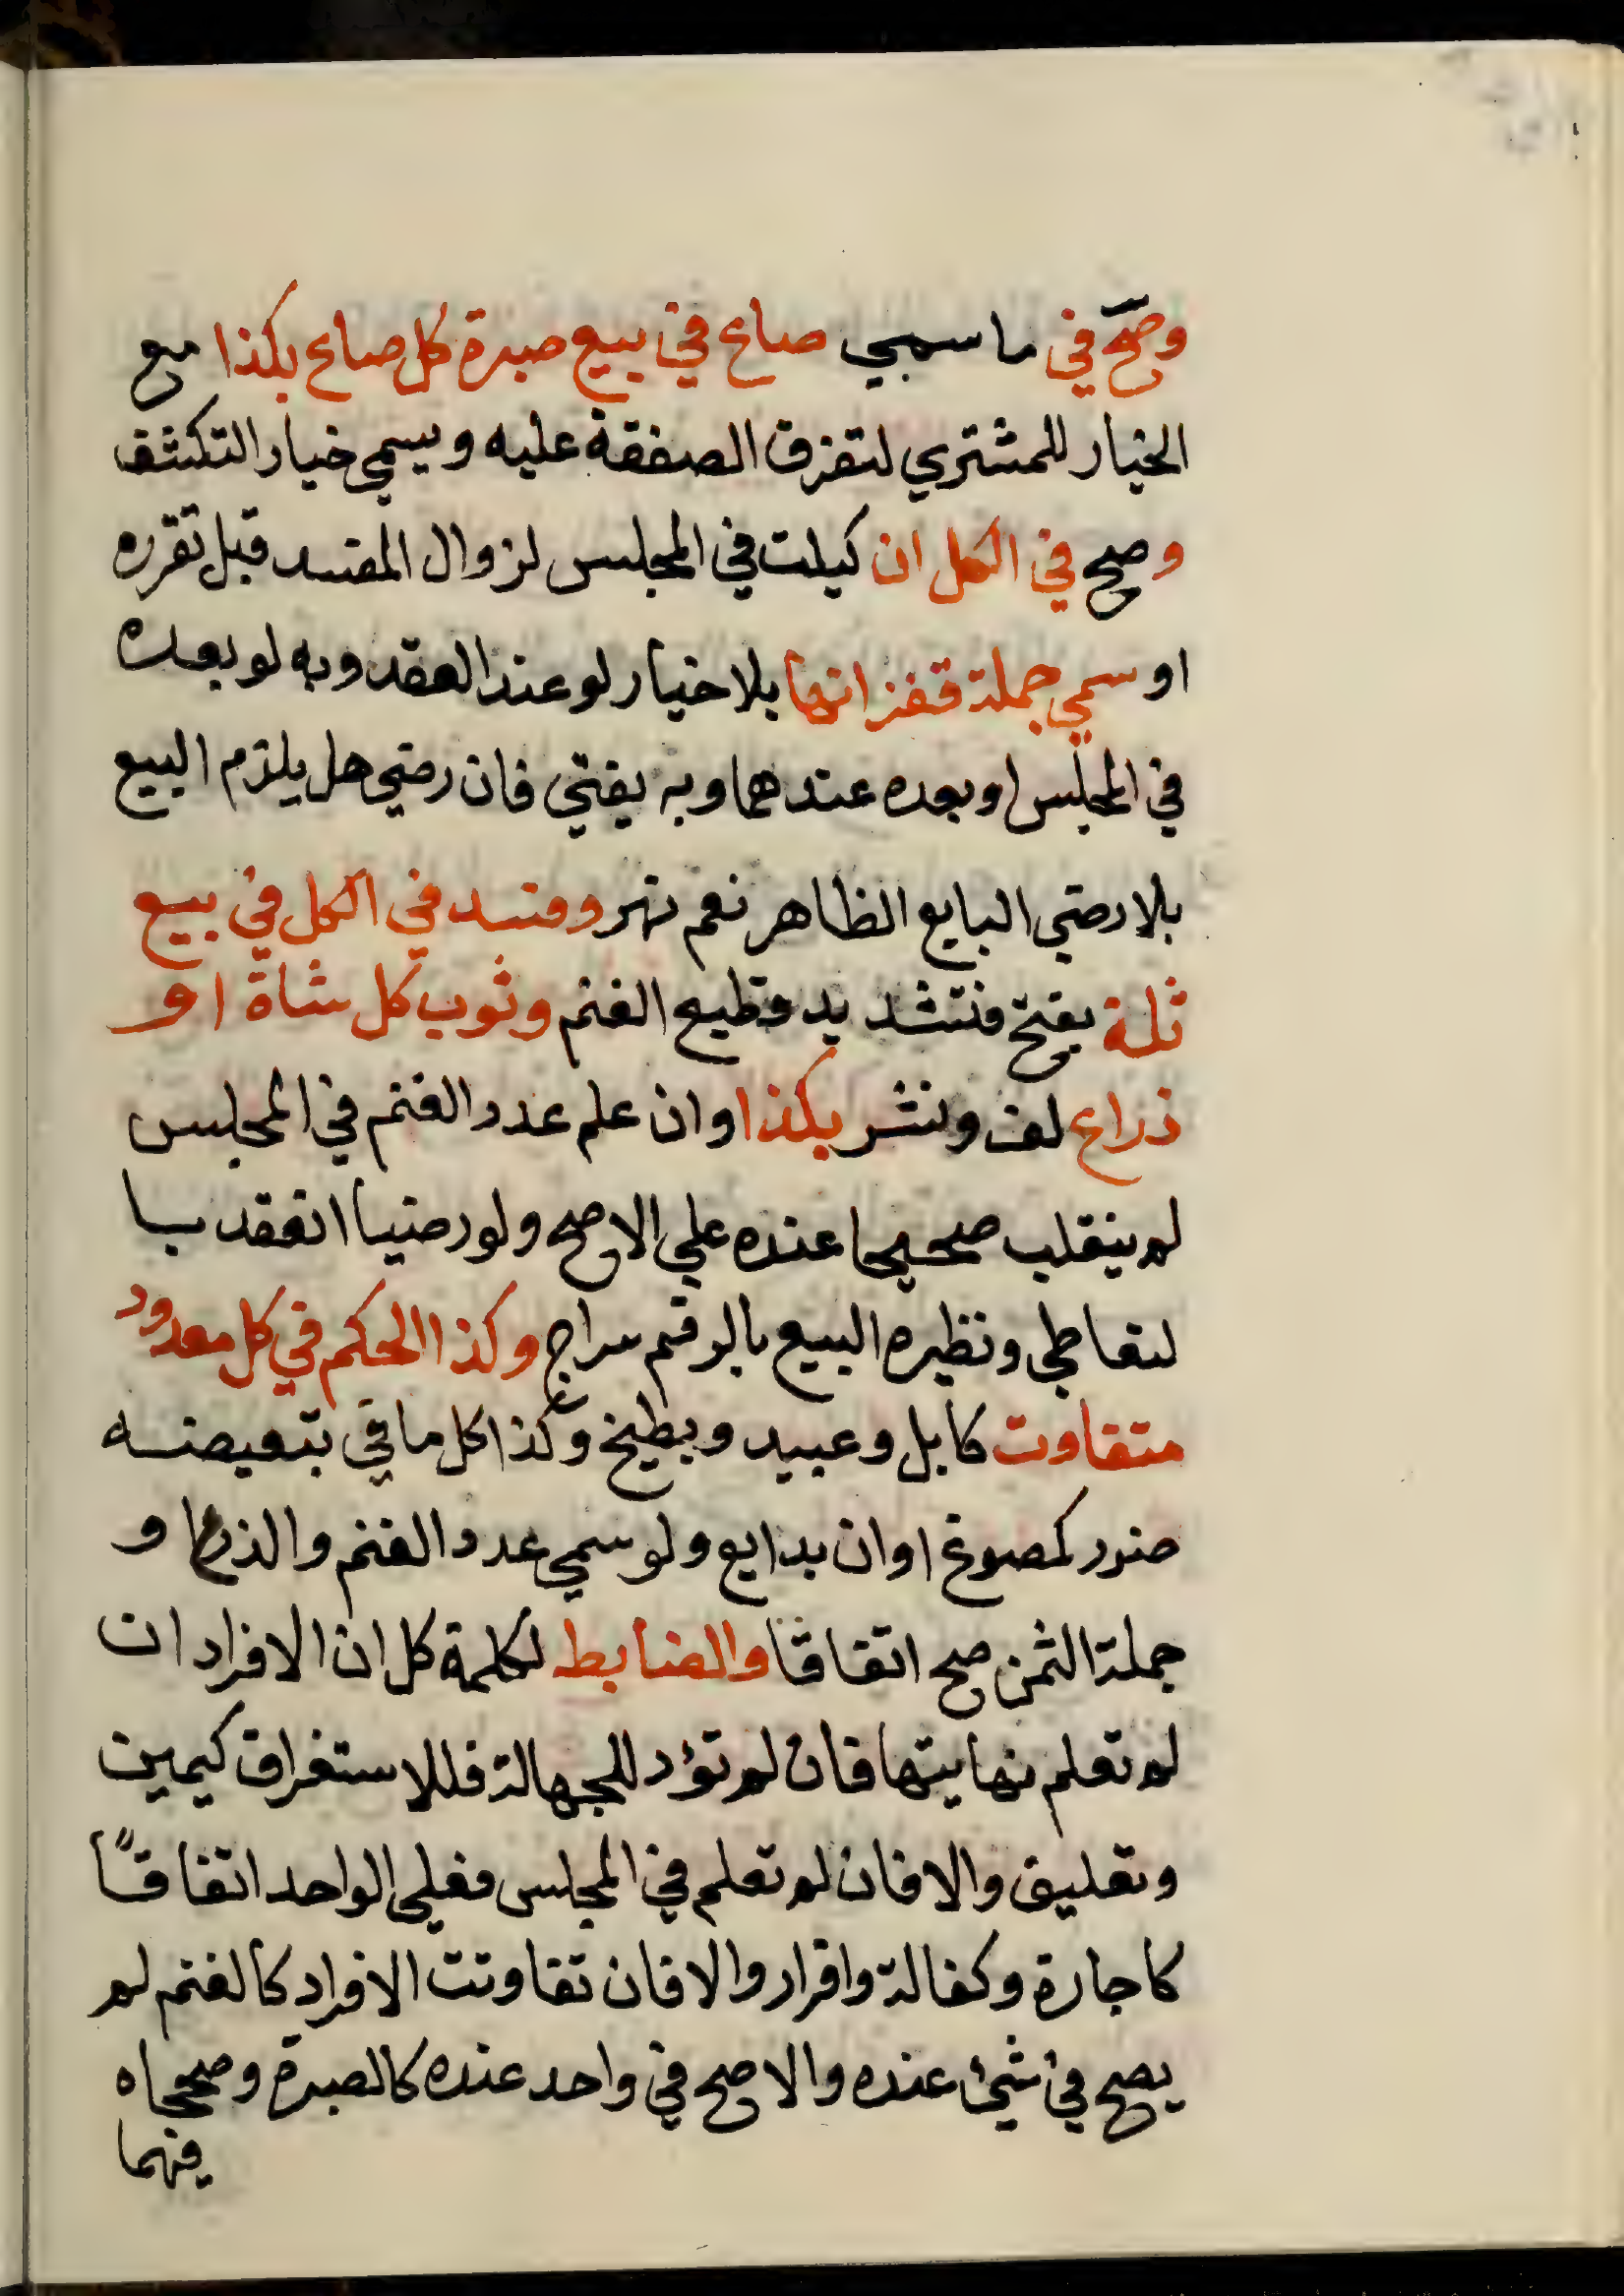 وصح في ما سمي صاع في بيع صبرة كل صاع بكذا مع
الخيار للمشتري لتفرق الصفقة عليه ويسمى خيار التكشف
وصح في الكل ان كيلت في المجلس لزوال المفسد قبل تقرره
او سمي جملة قفزانها بلا خيار لو عند العقد وبه لو بعده
في المجلس او بعده عندهما وبه يفتي فان رضي هل يلزم البيع
بلا رضي البايع الظاهر نعم نهر وفسد في الكل في بيع
ثلة بفتح فتشديد قطيع الغنم وثوب كل شاة او
ذراع لف ونشر بكذا وان علم عدد الغنم في المجلس
لم ينقلب صحيحا عنده علي الاصح ولو رضيا انعقد با
لتعاطي ونظيره البيع بالرقم سراج وكذا الحكم في كل معدود
متفاوت كابل وعبيد وبطيخ وكذا كل ما في تبعيضه
ضرر كمصوغ اوان بدايع ولو سمي عدد الغنم والذرع او
جملة الثمن صح اتفاقا والضابط لكلمة كل ان الافراد ان
لم تعلم نهايتها فان لم تؤد للجهالة فللاستغراق كيمين
وتعليق والا فان لم تعلم في المجلس فعلى الواحد اتفاقًا
كاجارة وكفالة واقرار والا فان تفاوتت الافراد كالغنم لم
يصح في شيئ عنده والا صح في واحد عنده كالصبرة وصححاه
فيهما